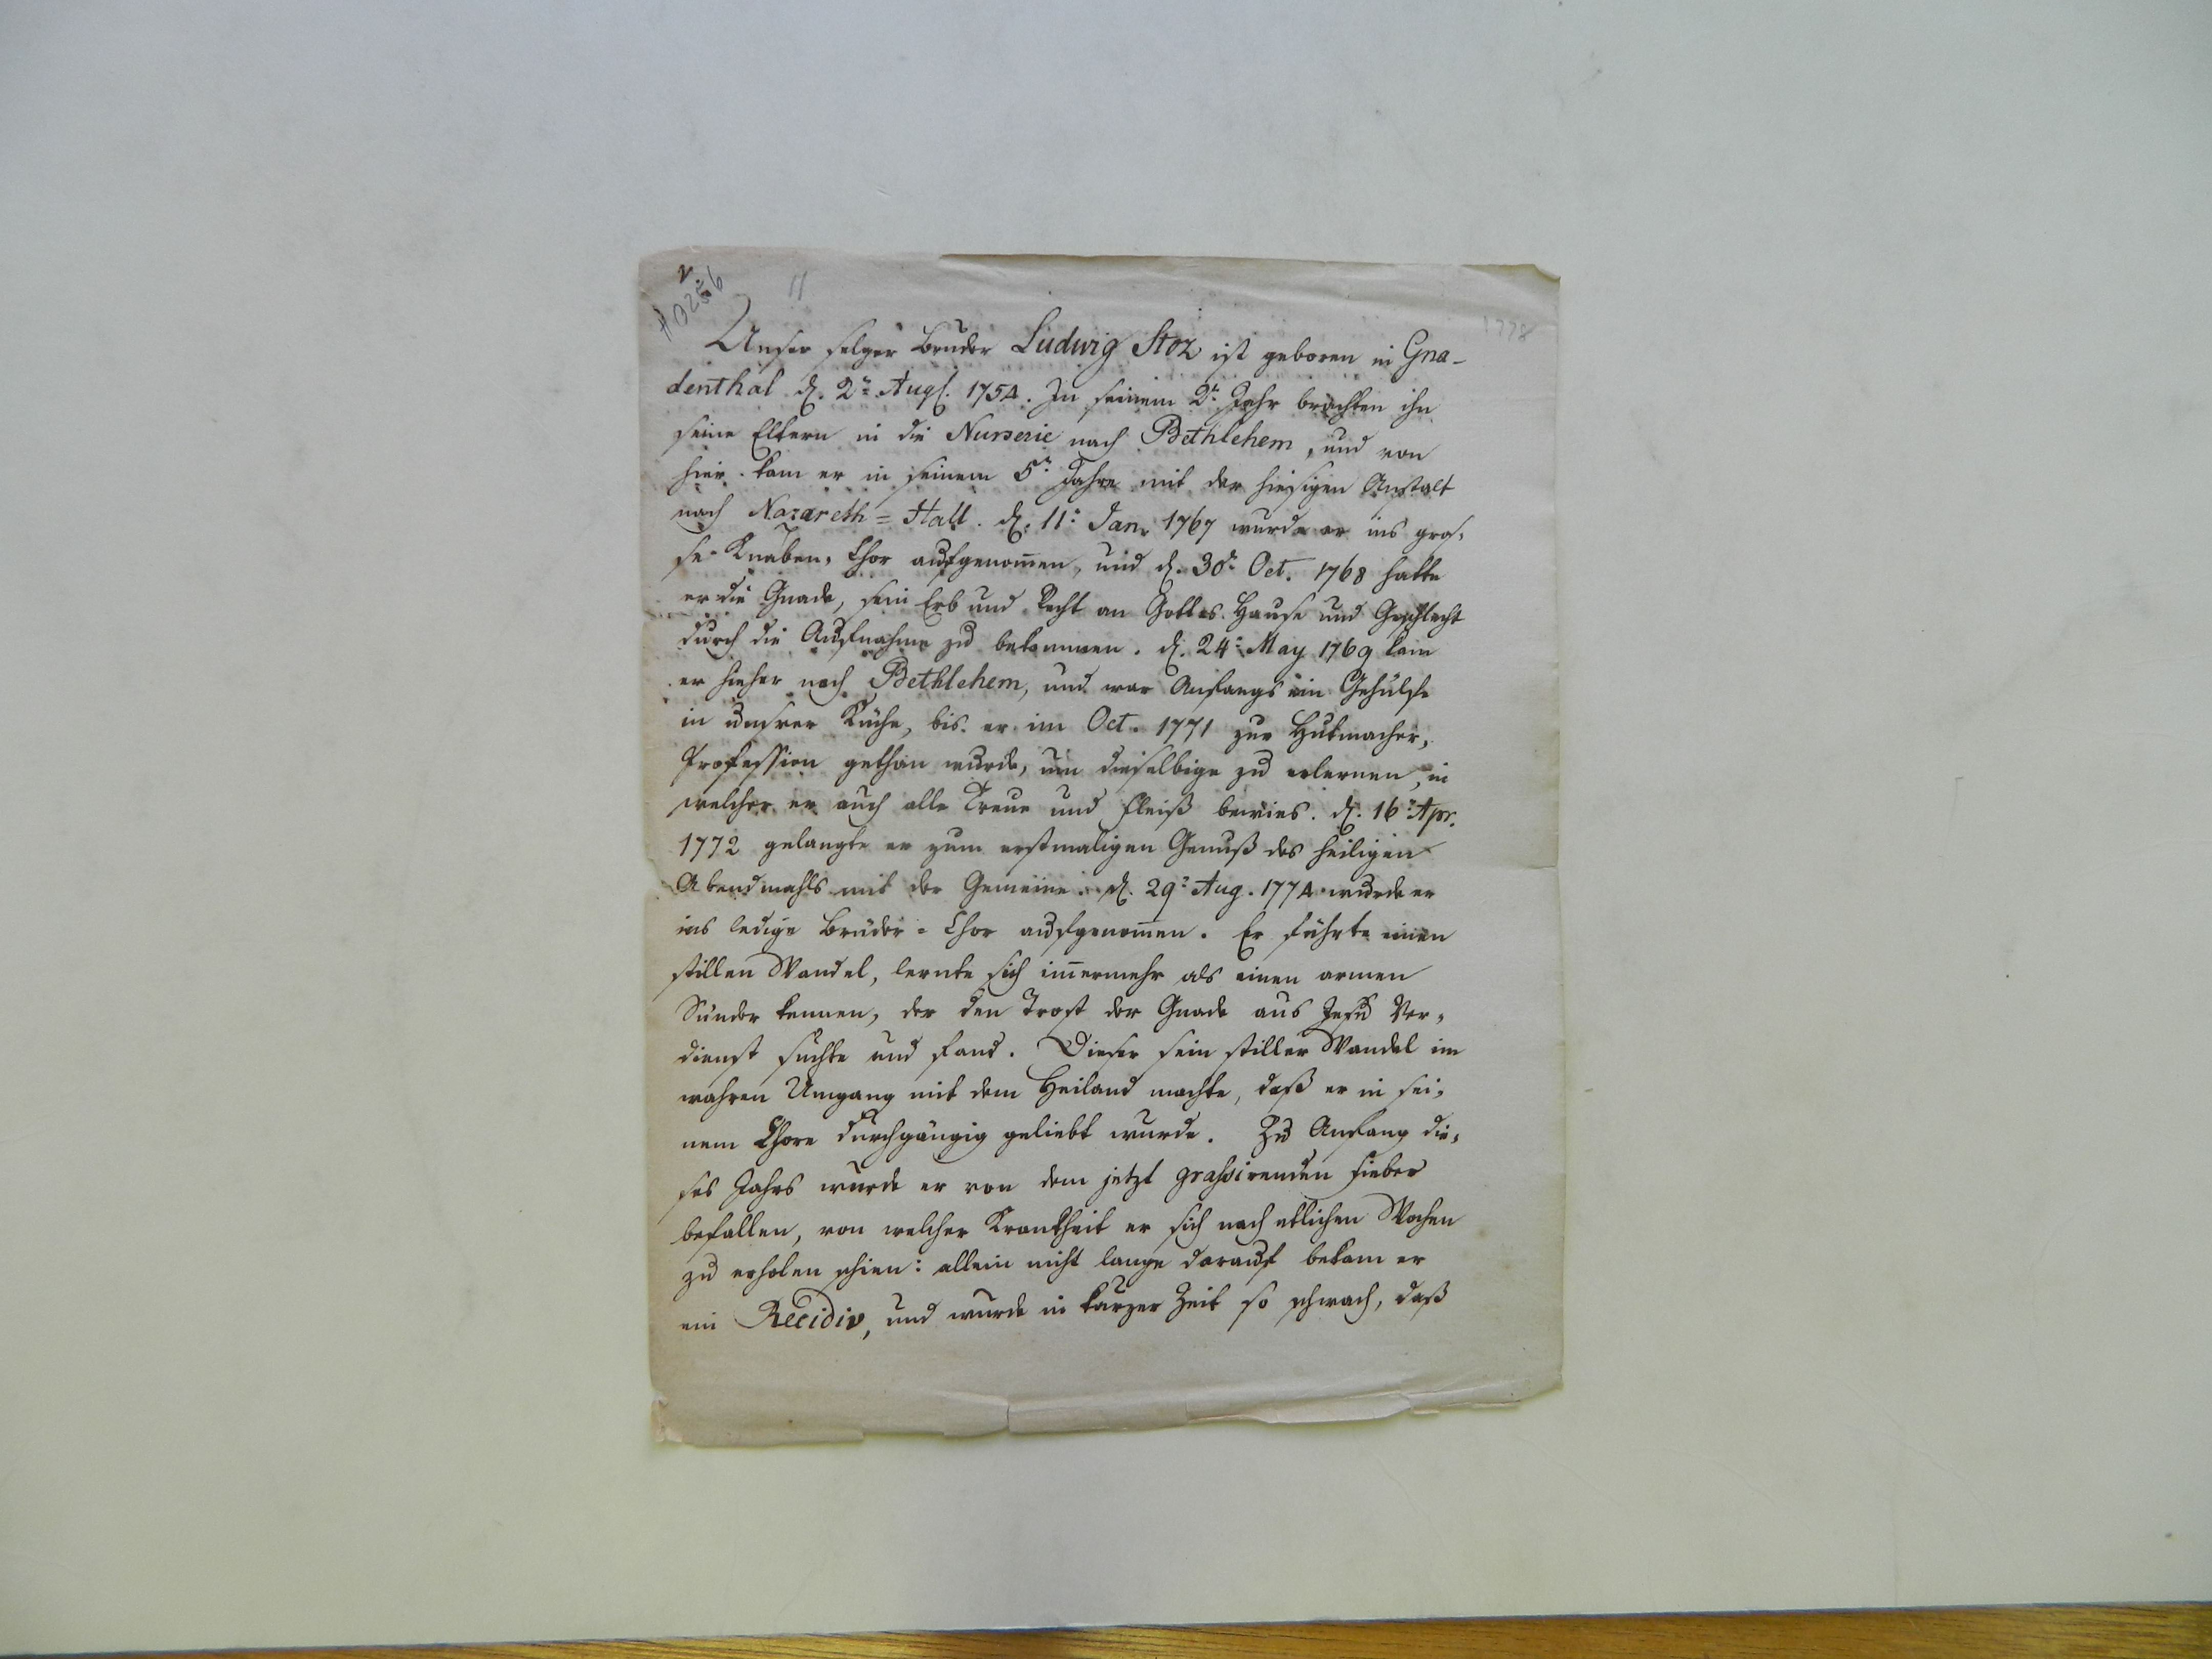 #0256
11
1778
Unser selger Bruder Ludwig Stoz ist geboren in Gna-
denthal d. 2n Augs. 1754. In seinem 2n Jahr brachten ihn
seine Eltern in die Nurserie nach Bethlehem, und von
hier kam er in seinem 5n Jahre mit der hiesigen Anstalt
nach Nazareth=Hall. d. 11n Jan. 1767 wurde er ins gros-
se Knaben-Chor aufgenom̄en, und d. 30n Oct. 1768 hatte
er die Gnade, sein Erb und Recht an Gottes Hause und Geschlecht
durch die Aufnahme zu bekommen. d. 24n May 1769 kam
er hieher nach Bethlehem, und war Anfangs ein Gehülfe
in unsrer Küche, bis er im Oct. 1771 zur Hutmacher-
Profession gethan wurde, um dieselbige zu erlernen, in
welcher er auch alle Treue und Fleiß bewies. d. 16n Apr.
1772 gelangte er zum erstmaligen Genuß des heiligen
Abendmahls mit der Gemeine. d. 29n Aug. 1774 wurde er
ins ledige Brüder=Chor aufgenom̄en. Er führte einen
stillen Wandel, lernte sich im̄ermehr als einen armen
Sünder kennen, der den Trost der Gnade aus Jesu Ver-
dienst suchte und fand. Dieser sein stiller Wandel im
wahren Umgang mit dem Heiland machte, daß er in sei-
nem Chore durchgängig geliebt wurde. Zu Anfang die-
ses Jahrs wurde er von dem jetzt grassirenden Fieber
befallen, von welcher Krankheit er sich nach etlichen Wochen
zu erholen schien: allein nicht lange darauf bekam er
ein Recidiv, und wurde in kurzer Zeit so schwach, daß